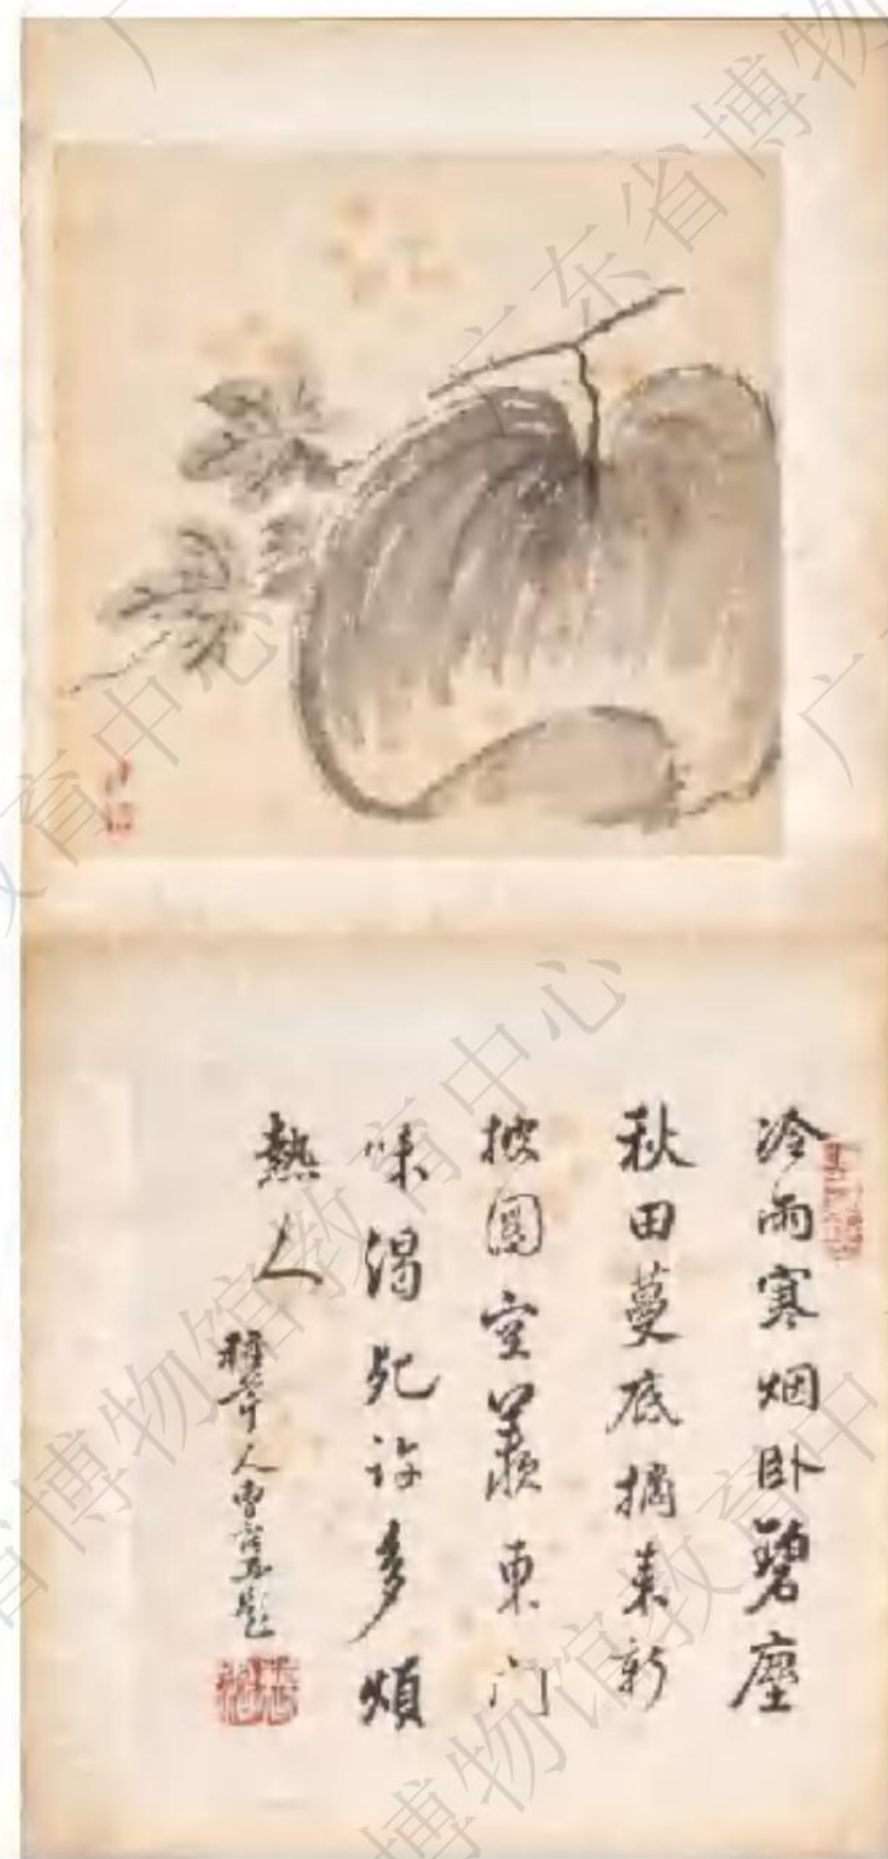 冷雨寒烟卧碧塵
秋田蔓底摘来新
披圖空羨東門
味渴死許多煩
熱人
广东省博物馆教育中心